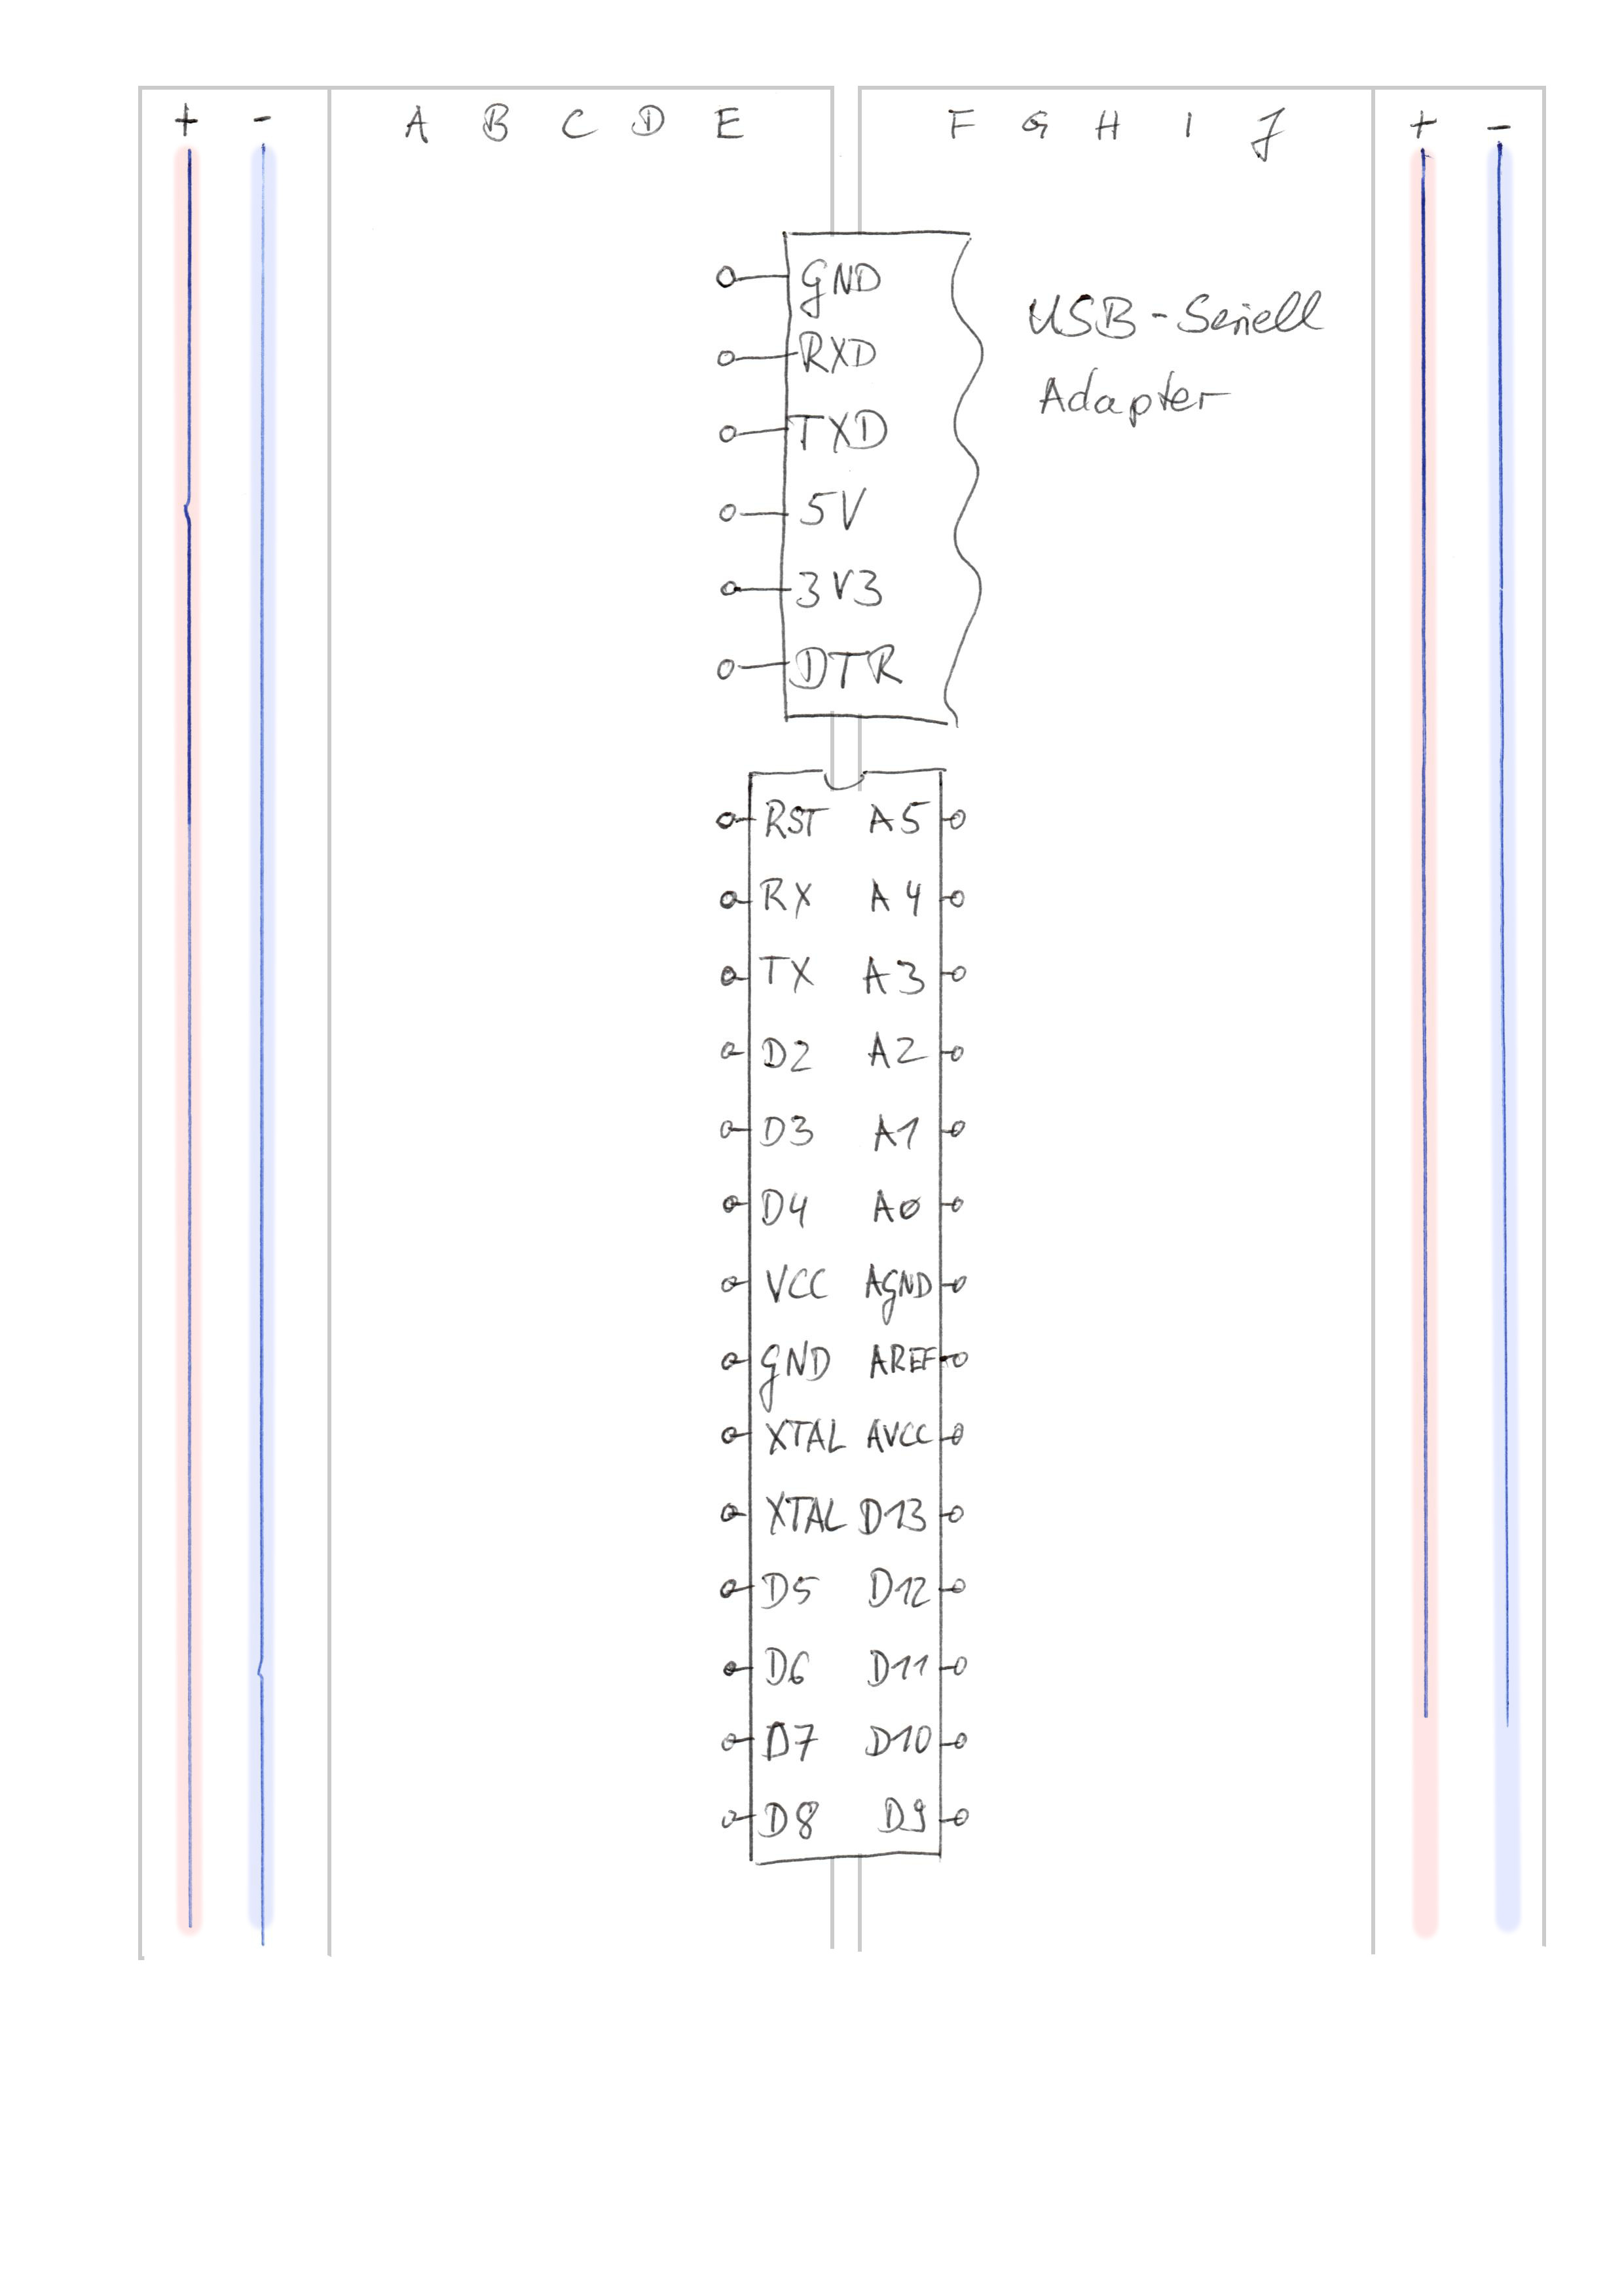 + - A B C D E F G H I J + -
GND
RXD
TXD
5V
3V3
DTR
USB-Seriell
Adapter
RST A5
RX A4
TX A3
D2 A2
D3 A1
D4 A0
VCC AGND
GND AREF
XTAL AVCC
XTAL D13
D5 D12
D6 D11
D7 D10
D8 D9